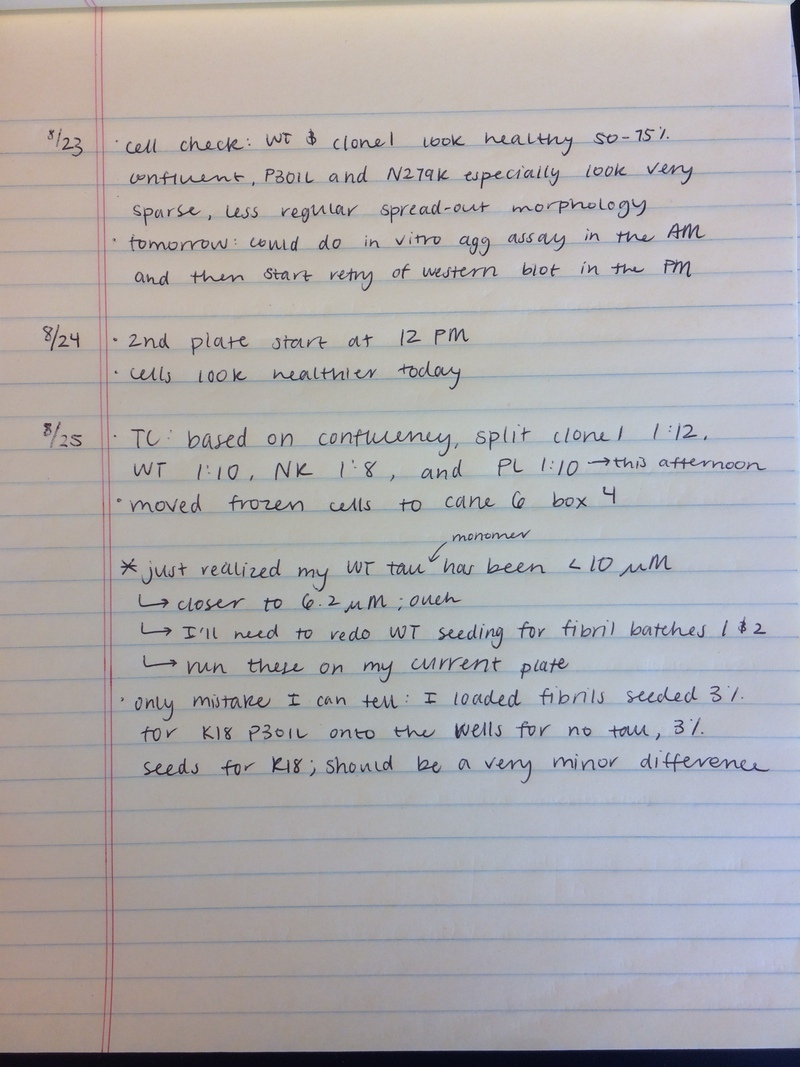 8/23 · cell check: WT & clone1 look healthy 50-75%
confluent, P301L and N279K especially look very
sparse, less regular spread-out morphology
· tomorrow: could do in vitro agg assay in the AM
and then start retry of western blot in the PM
8/24 · 2nd plate start at 12 PM
· cells look healthier today
8/25 · TC: based on confluency, split clone1 1:12,
WT 1:10, NK 1:8, and PL 1:10 → this afternoon
· moved frozen cells to cane 6 box 4
monomer
* just realized my WT tau has been < 10 μM
↳ closer to 6.2 μM; ouch
↳ I'll need to redo WT seeding for fibril batches 1 & 2
↳ run these on my current plate
· only mistake I can tell: I loaded fibrils seeded 3%
for K18 P301L onto the wells for no tau, 3%
seeds for K18; should be a very minor difference